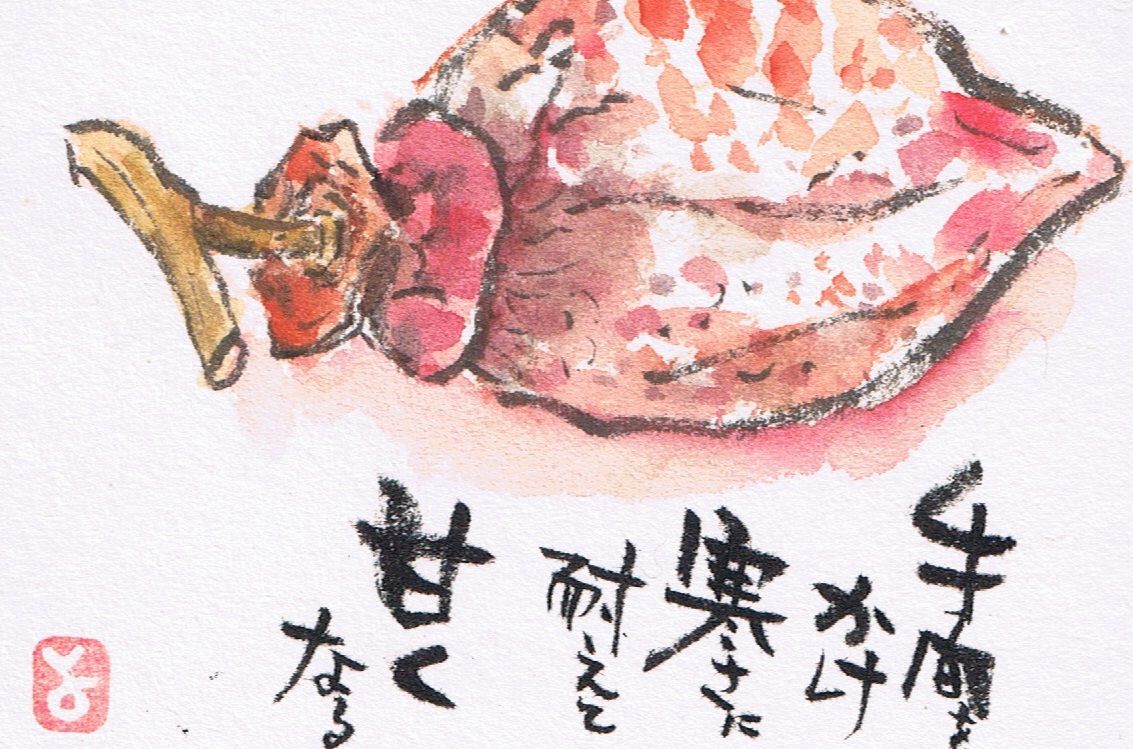 手間を
かけ
寒さに
耐えて
甘く
なる
と